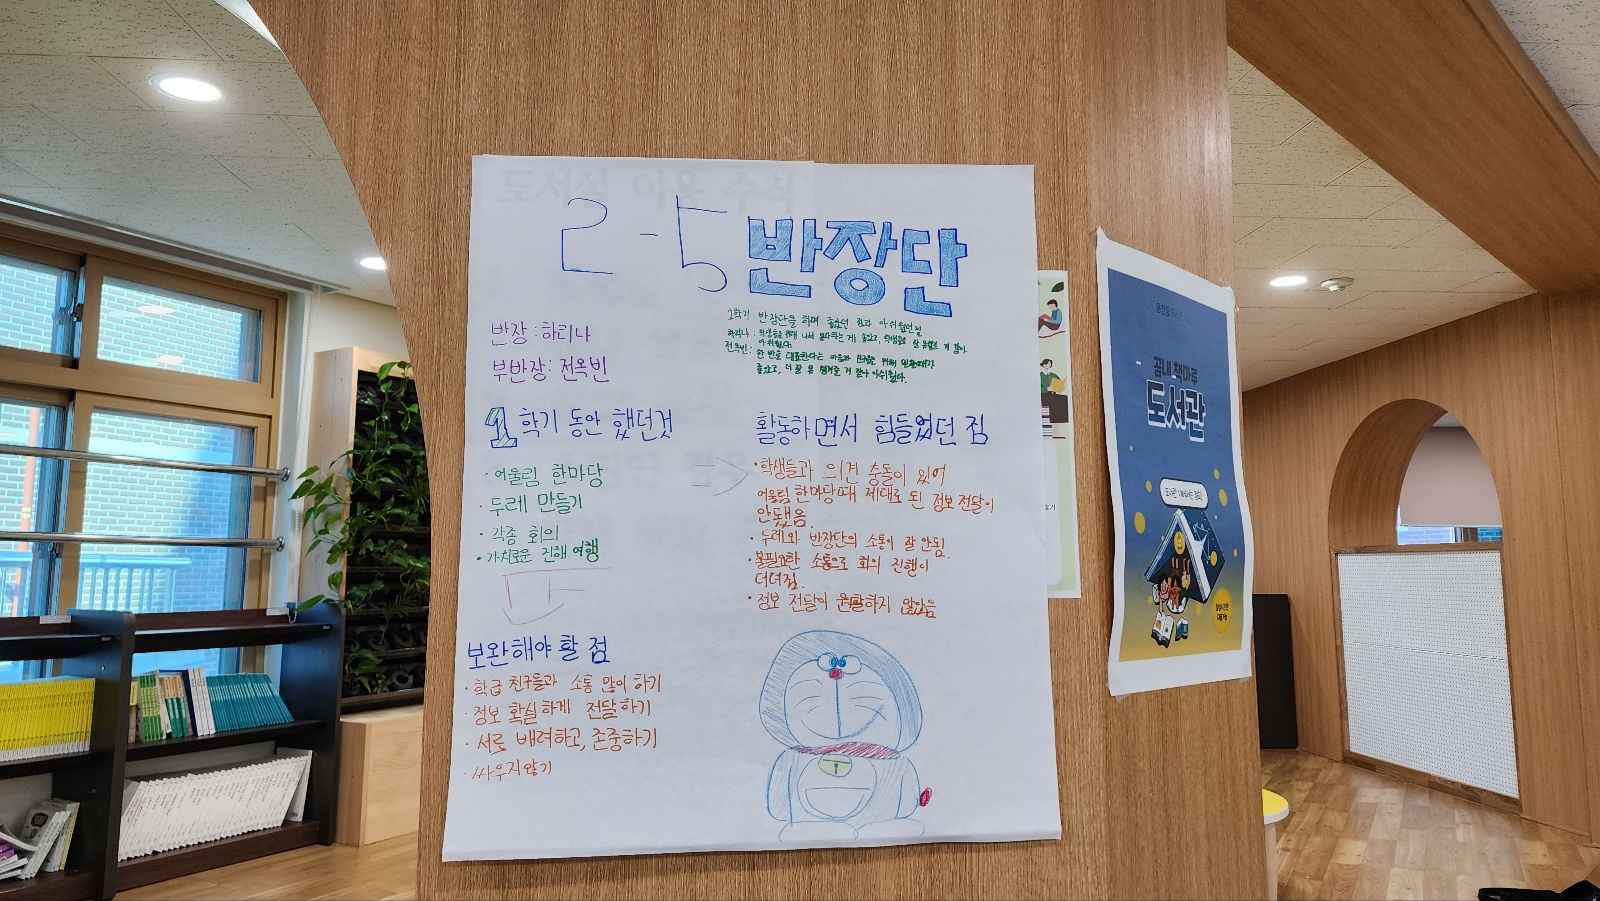 도서실 이용 수칙
2-5 반장단
반장 : 하티나
부반장 : 전옥빈
1학기 반장단을 하며 좋았던 점과 아쉬웠던 점
하티나 : 학생들을 위해 나서
아쉬웠다.
전옥빈 : 한 반을 대표한다는 마음과 친구들을 위해
좋았고, 더 잘 못 챙겨줄 거 같아 아쉬웠다.
1학기 동안 했던것
· 어울림 한마당
· 두레 만들기
· 각종 회의
· 가치로운 진해 여행
활동하면서 힘들었던 점
· 학생들과 의견 충돌이 있어
어울림 한마당때 제대로 된 정보 전달이
안됐음.
· 두레와 반장단의 소통이 잘 안됨.
· 불필요한 소통으로 회의 진행이
더뎌짐.
· 정보 전달이 원활하지 않았음
보완해야 할 점
· 학급 친구들과 소통 많이 하기
· 정보 확실하게 전달하기
· 서로 배려하고, 존중하기
· 싸우지않기
꿈내 책마루
도서관